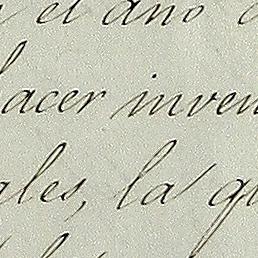 el año
hacer inven
ales, la qu